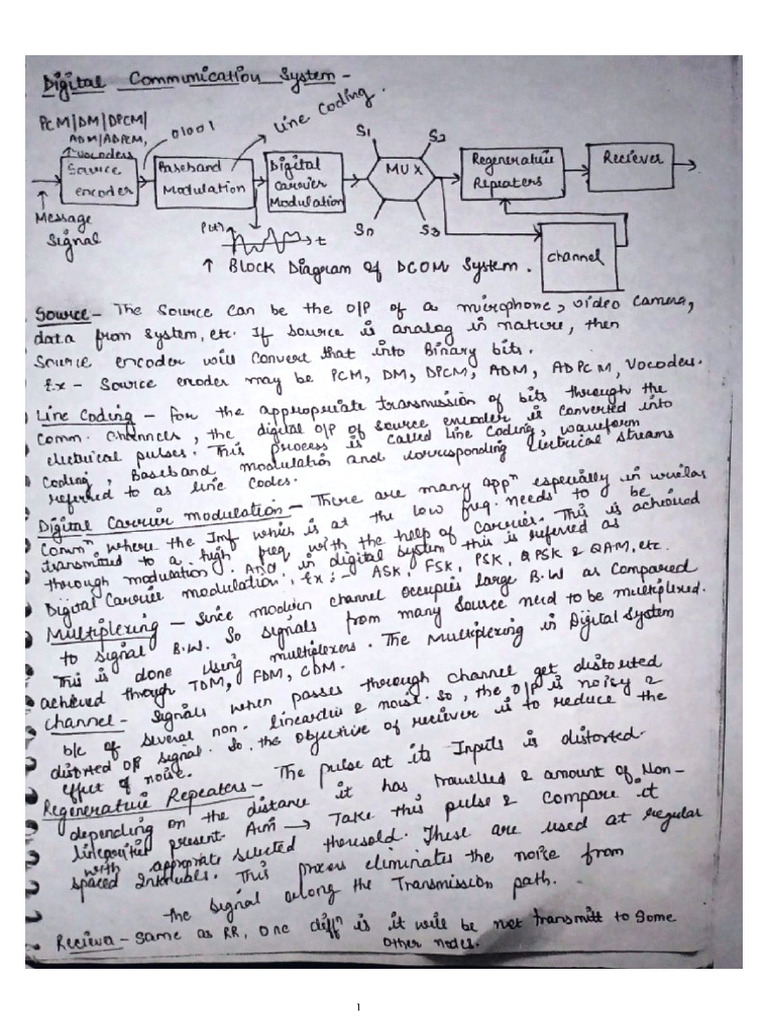 Digital Communication System -
PCM/DM/DPCM/
ADM/ADPCM,
Vocoders
01001
Line Coding.
Source
encoder
Baseband
Modulation
Digital
Carrier
Modulation
S1
S2
MUX
Sn
S3
Regenerative
Repeaters
Reciever
Message
Signal
P(t)
t
Channel
↑ Block Diagram of DCOM System.
Source - The Source can be the O/P of a microphone, video camera,
data from system, etc. If source is analog in nature, then
Source encoder will convert that into Binary bits.
Ex - Source encoder may be PCM, DM, DPCM, ADM, ADPCM, Vocoders.
Line Coding - for the appropriate transmission of bits through the
Comm. Channels, the digital O/P of source encoder is converted into
electrical pulses. This process is called Line Coding, waveform
coding, Baseband modulation and corresponding Electrical streams
referred to as line codes.
Digital Carrier modulation - There are many appn especially in wireless
Commn where the Inf which is at the low freq. needs to be
transmitted to a high freq with the help of Carrier. This is achieved
through modulation. And in digital system this is referred as
Digital Carrier modulation, Ex:- ASK, FSK, PSK, QPSK & QAM, etc.
Multiplexing - Since modern channel occupies large B.W as compared
to signal B.W. So signals from many Source need to be multiplexed.
This is done using multiplexers. The Multiplexing in Digital System
achieved through TDM, FDM, CDM.
Channel - Signals when passes through channel get distorted
b/c of several non-linearities & noise. So, the O/P is noisy &
distorted O/P signal. So the objective of reciever is to reduce the
effect of noise.
Regenerative Repeaters - The pulse at its Inputs is distorted.
depending on the distance it has travelled & amount of Non-
linearities present. Aim → Take this pulse & compare it
with appropriate selected thersold. These are used at regular
spaced Intervals. This process eliminates the noise from
the signal along the Transmission path.
Reciever - Same as RR, one diffn is it will be not transmitt to some
other nodes.
1